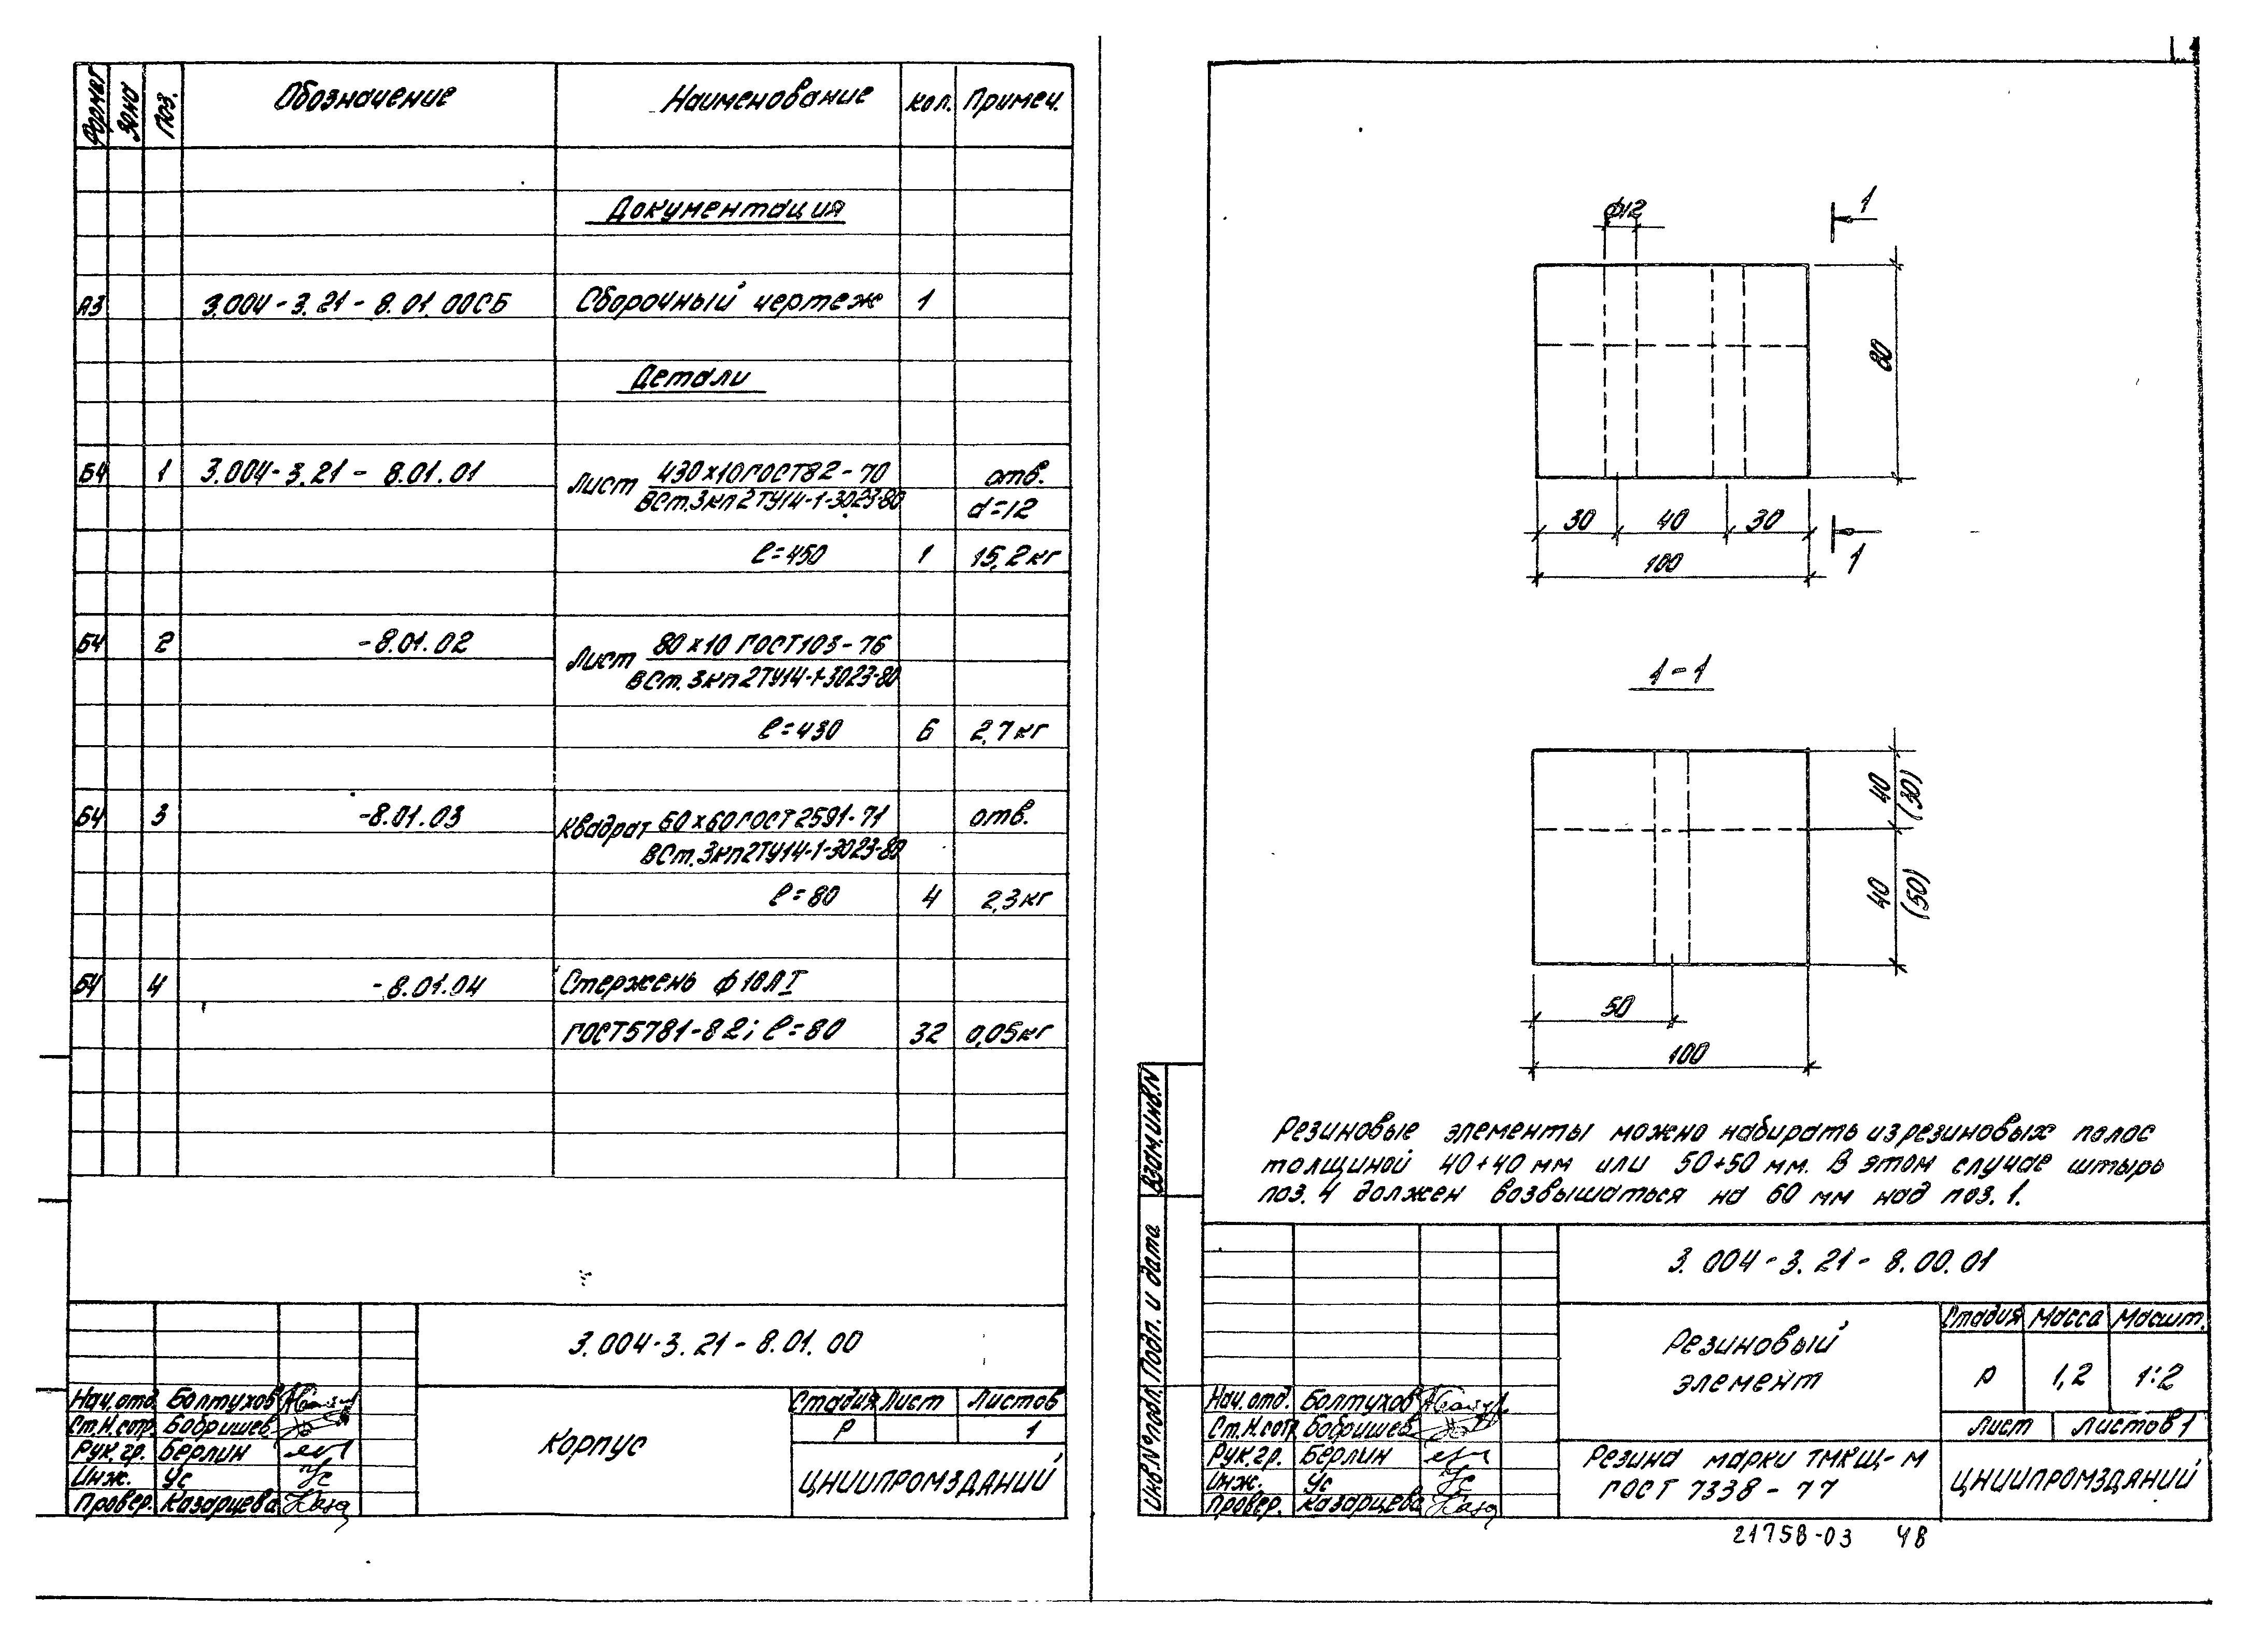 Формат Зона Поз. Обозначение Наименование Кол. Примеч.
Документация
А3 3.004-3.21-8.01.00СБ Сборочный чертеж 1
Детали
Б4 1 3.004-3.21-8.01.01 Лист 430х10 ГОСТ 82-70 отв.
ВСт.3кп2ТУ14-1-3023-80 d=12
ℓ=450 1 15,2кг
Б4 2 -8.01.02 Лист 80х10 ГОСТ 103-76
ВСт.3кп2ТУ14-1-3023-80
ℓ=430 6 2,7кг
Б4 3 -8.01.03 Квадрат 60х60 ГОСТ 2591-71 отв.
ВСт.3кп2ТУ14-1-3023-80
ℓ=80 4 2,3кг
Б4 4 -8.01.04 Стержень ф10АI
ГОСТ5781-82; ℓ=80 32 0,05кг
3.004-3.21-8.01.00
Нач.отд. Болтухов
Ст.Н.сотр. Бобришев
Рук.гр. Берлин
Инж. Ус
Провер. Казарцева
Корпус
Стадия Лист Листов
Р 1
ЦНИИПРОМЗДАНИЙ
ф12
1
80
30 40 30
1
100
1-1
40
(30)
40
(50)
50
100
Резиновые элементы можно набирать из резиновых полос
толщиной 40+40 мм или 50+50 мм. В этом случае штырь
поз. 4 должен возвышаться на 60 мм над поз. 1.
Взам.инв.N
Подп. и дата
Инв.N°подл.
3.004-3.21-8.00.01
Нач.отд. Болтухов
Ст.Н.сотр. Бобришев
Рук.гр. Берлин
Инж. Ус
Провер. Казарцева
Резиновый
элемент
Стадия Масса Масшт.
Р 1,2 1:2
Лист Листов 1
Резина марки ТМКЩ-М
ГОСТ 7338-77
ЦНИИПРОМЗДАНИЙ
21758-03 48